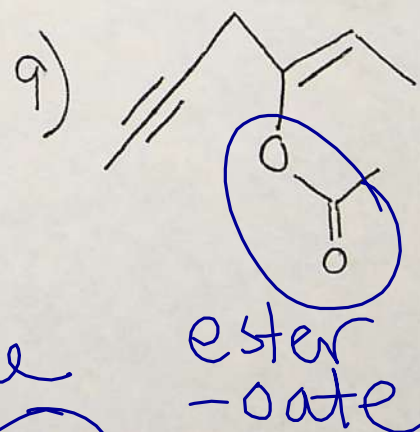 9)
O
O
ester
-oate